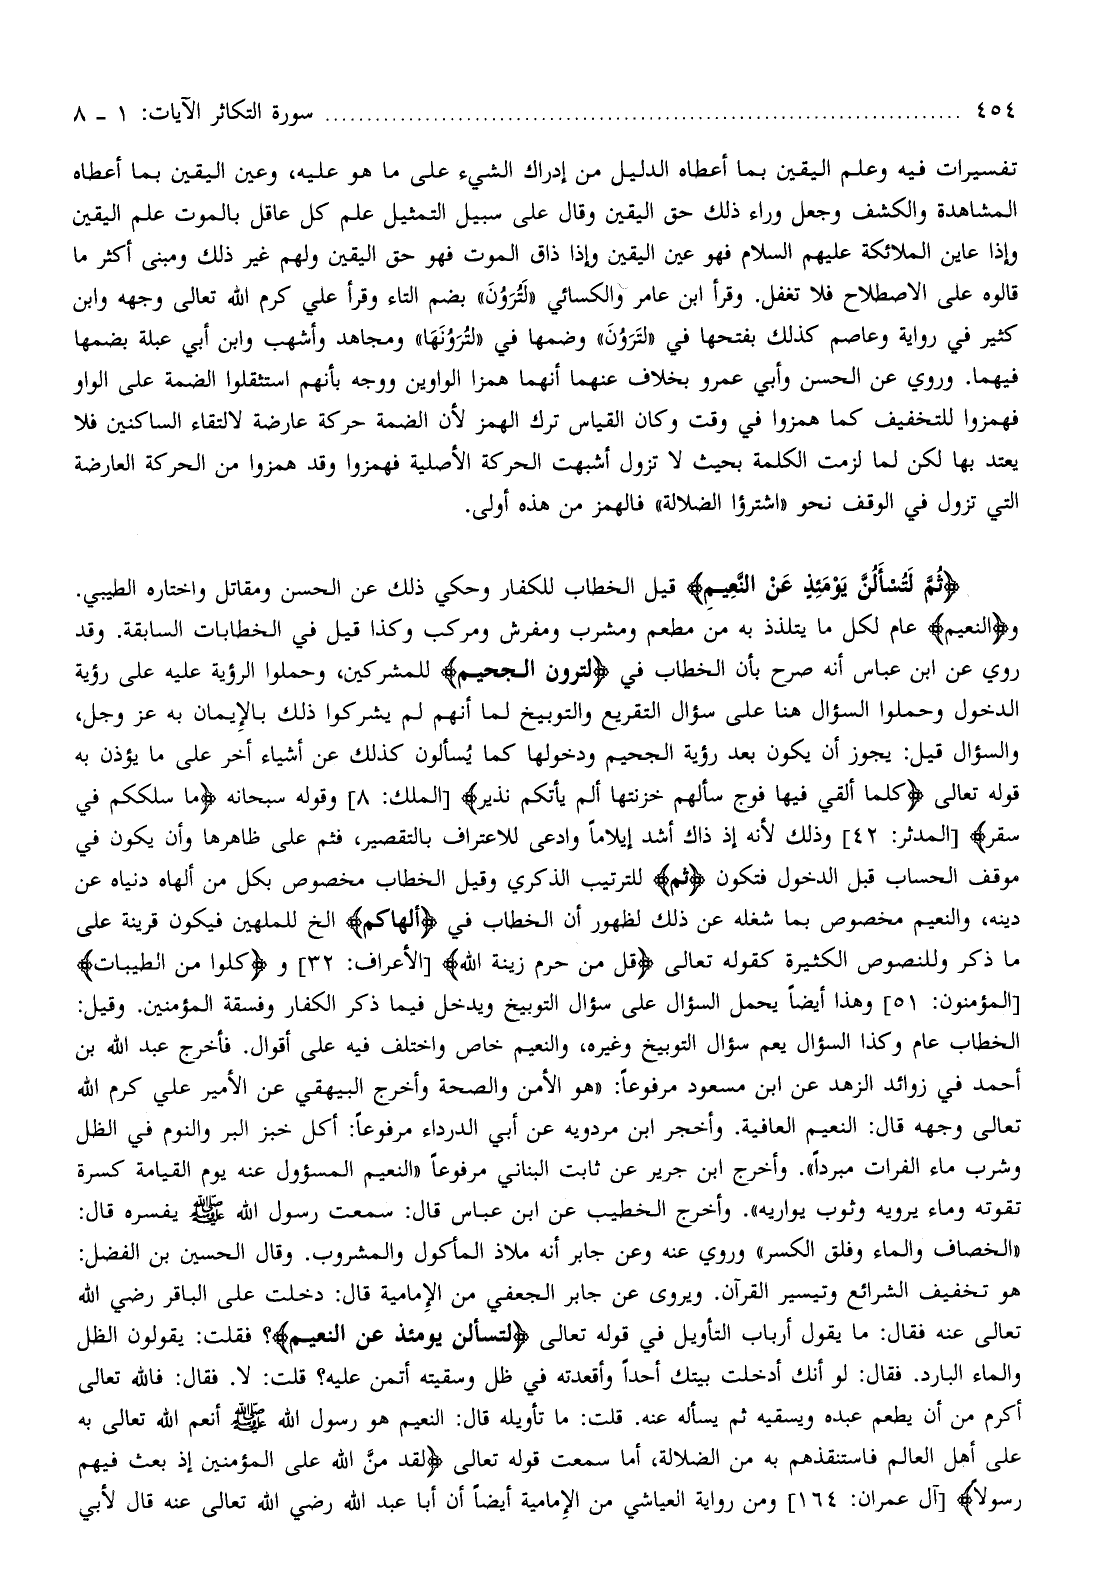 ٤٥٤ ........................................................................... سورة التكاثر الآيات: ١ - ٨
تفسيرات فيه وعلم اليقين بما أعطاه الدليل من إدراك الشيء على ما هو عليه، وعين اليقين بما أعطاه
المشاهدة والكشف وجعل وراء ذلك حق اليقين وقال على سبيل التمثيل علم كل عاقل بالموت علم اليقين
وإذا عاين الملائكة عليهم السلام فهو عين اليقين وإذا ذاق الموت فهو حق اليقين ولهم غير ذلك ومبنى أكثر ما
قالوه على الاصطلاح فلا تغفل. وقرأ ابن عامر والكسائي «لَتُرَوُنَ» بضم التاء وقرأ علي كرم الله تعالى وجهه وابن
كثير في رواية وعاصم كذلك بفتحها في «لتَرَوُنَ» وضمها في «لتُرَوُنَهَا» ومجاهد وأشهب وابن أبي عبلة بضمها
فيهما. وروي عن الحسن وأبي عمرو بخلاف عنهما أنهما همزا الواوين ووجه بأنهم استثقلوا الضمة على الواو
فهمزوا للتخفيف كما همزوا في وقت وكان القياس ترك الهمز لأن الضمة حركة عارضة لالتقاء الساكنين فلا
يعتد بها لكن لما لزمت الكلمة بحيث لا تزول أشبهت الحركة الأصلية فهمزوا وقد همزوا من الحركة العارضة
التي تزول في الوقف نحو «اشترؤا الضلالة» فالهمز من هذه أولى.
﴿ثُمَّ لَتُسْأَلُنَّ يَوْمَئِذٍ عَنْ النَّعِيمِ﴾ قيل الخطاب للكفار وحكي ذلك عن الحسن ومقاتل واختاره الطيبي.
و﴿النعيم﴾ عام لكل ما يتلذذ به من مطعم ومشرب ومفرش ومركب وكذا قيل في الخطابات السابقة. وقد
روي عن ابن عباس أنه صرح بأن الخطاب في ﴿لترون الجحيم﴾ للمشركين، وحملوا الرؤية عليه على رؤية
الدخول وحملوا السؤال هنا على سؤال التقريع والتوبيخ لما أنهم لم يشركوا ذلك بالإيمان به عز وجل،
والسؤال قيل: يجوز أن يكون بعد رؤية الجحيم ودخولها كما يُسألون كذلك عن أشياء أخر على ما يؤذن به
قوله تعالى ﴿كلما ألقي فيها فوج سألهم خزنتها ألم يأتكم نذير﴾ [الملك: ٨] وقوله سبحانه ﴿ما سلككم في
سقر﴾ [المدثر: ٤٢] وذلك لأنه إذ ذاك أشد إيلاماً وادعى للاعتراف بالتقصير، فثم على ظاهرها وأن يكون في
موقف الحساب قبل الدخول فتكون ﴿ثم﴾ للترتيب الذكري وقيل الخطاب مخصوص بكل من ألهاه دنياه عن
دينه، والنعيم مخصوص بما شغله عن ذلك لظهور أن الخطاب في ﴿ألهاكم﴾ الخ للملهين فيكون قرينة على
ما ذكر وللنصوص الكثيرة كقوله تعالى ﴿قل من حرم زينة الله﴾ [الأعراف: ٣٢] و ﴿كلوا من الطيبات﴾
[المؤمنون: ٥١] وهذا أيضاً يحمل السؤال على سؤال التوبيخ ويدخل فيما ذكر الكفار وفسقة المؤمنين. وقيل:
الخطاب عام وكذا السؤال يعم سؤال التوبيخ وغيره، والنعيم خاص واختلف فيه على أقوال. فأخرج عبد الله بن
أحمد في زوائد الزهد عن ابن مسعود مرفوعاً: «هو الأمن والصحة وأخرج البيهقي عن الأمير علي كرم الله
تعالى وجهه قال: النعيم العافية. وأخجر ابن مردويه عن أبي الدرداء مرفوعاً: أكل خبز البر والنوم في الظل
وشرب ماء الفرات مبرداً». وأخرج ابن جرير عن ثابت البناني مرفوعاً «النعيم المسؤول عنه يوم القيامة كسرة
تقوته وماء يرويه وثوب يواريه». وأخرج الخطيب عن ابن عباس قال: سمعت رسول الله ﷺ يفسره قال:
«الخصاف والماء وفلق الكسر» وروي عنه وعن جابر أنه ملاذ المأكول والمشروب. وقال الحسين بن الفضل:
هو تخفيف الشرائع وتيسير القرآن. ويروى عن جابر الجعفي من الإمامية قال: دخلت على الباقر رضي الله
تعالى عنه فقال: ما يقول أرباب التأويل في قوله تعالى ﴿لتسألن يومئذ عن النعيم﴾؟ فقلت: يقولون الظل
والماء البارد. فقال: لو أنك أدخلت بيتك أحداً وأقعدته في ظل وسقيته أتمن عليه؟ قلت: لا. فقال: فالله تعالى
أكرم من أن يطعم عبده ويسقيه ثم يسأله عنه. قلت: ما تأويله قال: النعيم هو رسول الله ﷺ أنعم الله تعالى به
على أهل العالم فاستنقذهم به من الضلالة، أما سمعت قوله تعالى ﴿لقد منَّ الله على المؤمنين إذ بعث فيهم
رسولاً﴾ [آل عمران: ١٦٤] ومن رواية العياشي من الإمامية أيضاً أن أبا عبد الله رضي الله تعالى عنه قال لأبي